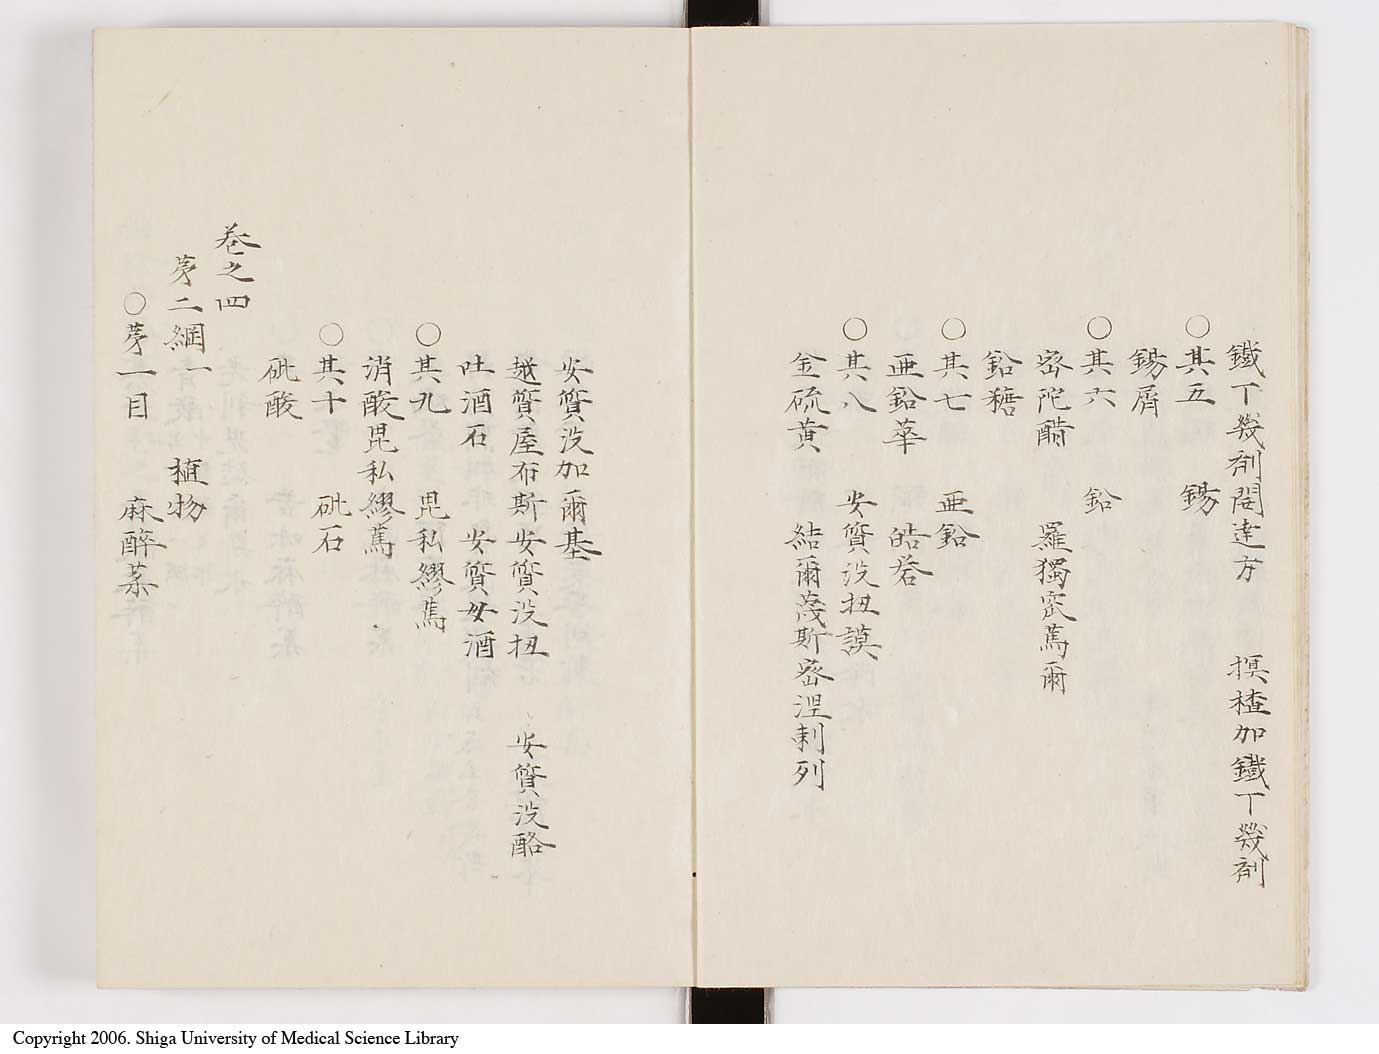 鐵丁幾剤閣達方　榠樝加鐵丁幾剤
○其五　錫
錫屑
○其六　鉛
密陀醋　羅獨突蔫爾
鉛糖
○其七　亜鉛
亜鉛華　皓礬
○其八　安質没扭謨
金硫黄　結爾蔑斯密涅剌列
安質没加爾基
越質屋布斯安質没扭　安質没酪
吐酒石　安質母酒
○其九　毘私繆蔫
消酸毘私繆蔫
○其十　砒石
砒酸
巻之四
第二綱一　植物
○第一目　麻酔薬
Copyright 2006. Shiga University of Medical Science Library